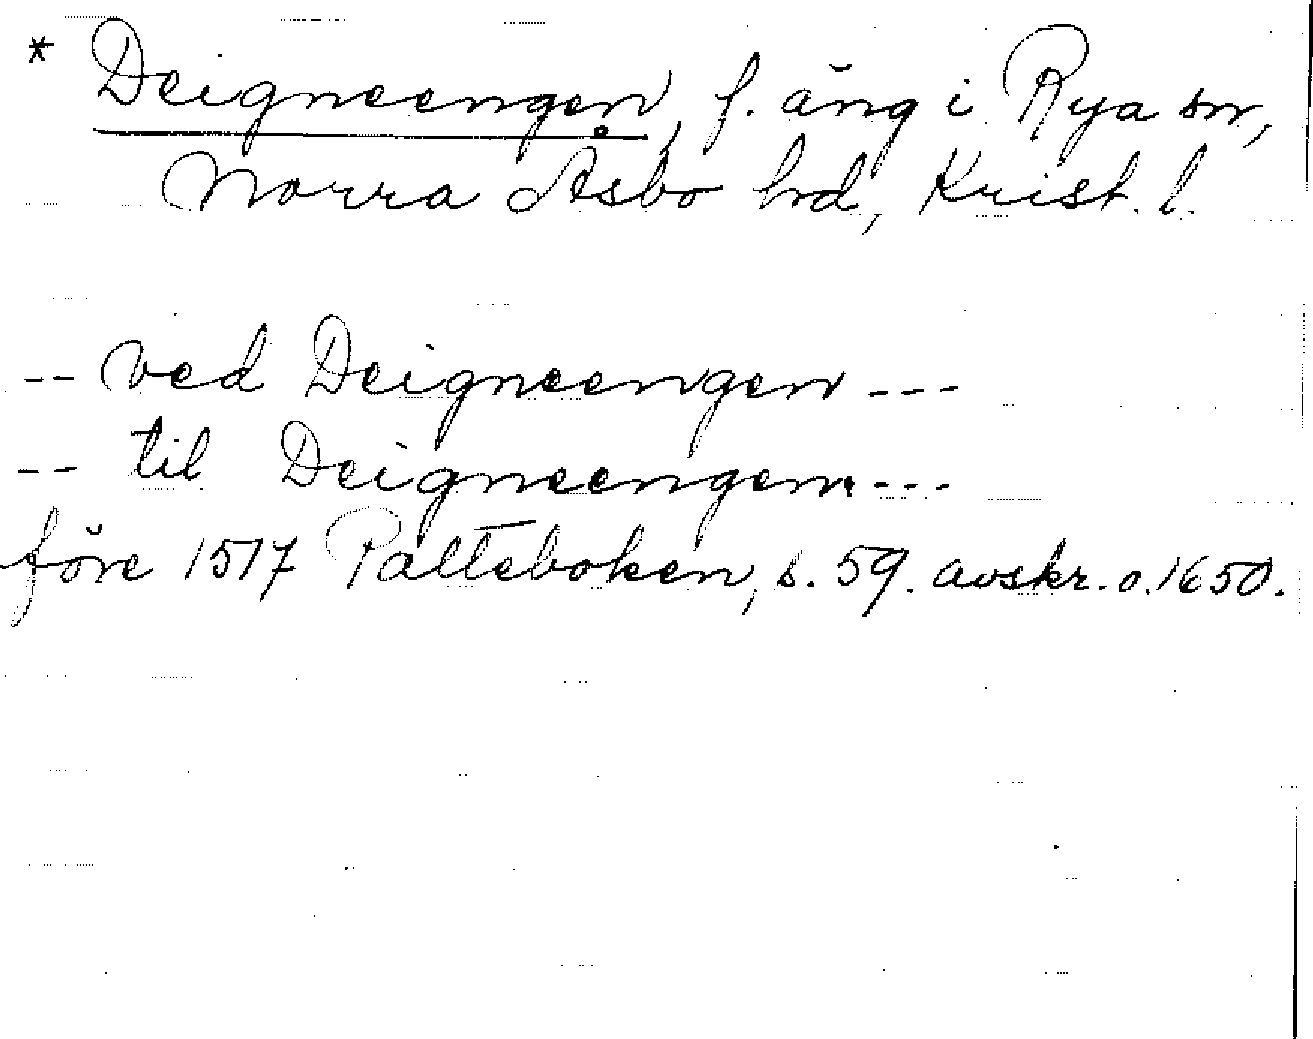 * Deigneengen, f. äng i Rya sn,
Norra Åsbo hd, Krist. l.
-- ved Deigneengen ---
-- til Deigneengen ---
före 1517 Palteboken, s. 59. avskr. o. 1650.